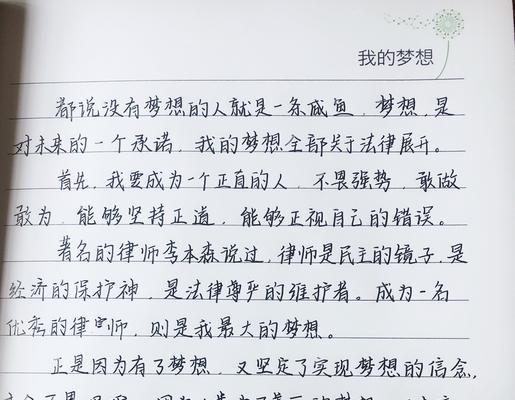 我的梦想
都说没有梦想的人就是一条咸鱼，梦想，是
对未来的一个承诺，我的梦想全部关于法律展开。
首先，我要成为一个正直的人，不畏强势，敢做
敢为，能够坚持正道，能够正视自己的错误。
著名的律师李本森说过，律师是民主的镜子，是
经济的保护神，是法律尊严的维护者。成为一名
优秀的律师，则是我最大的梦想。
正是因为有了梦想，又坚定了实现梦想的信念，